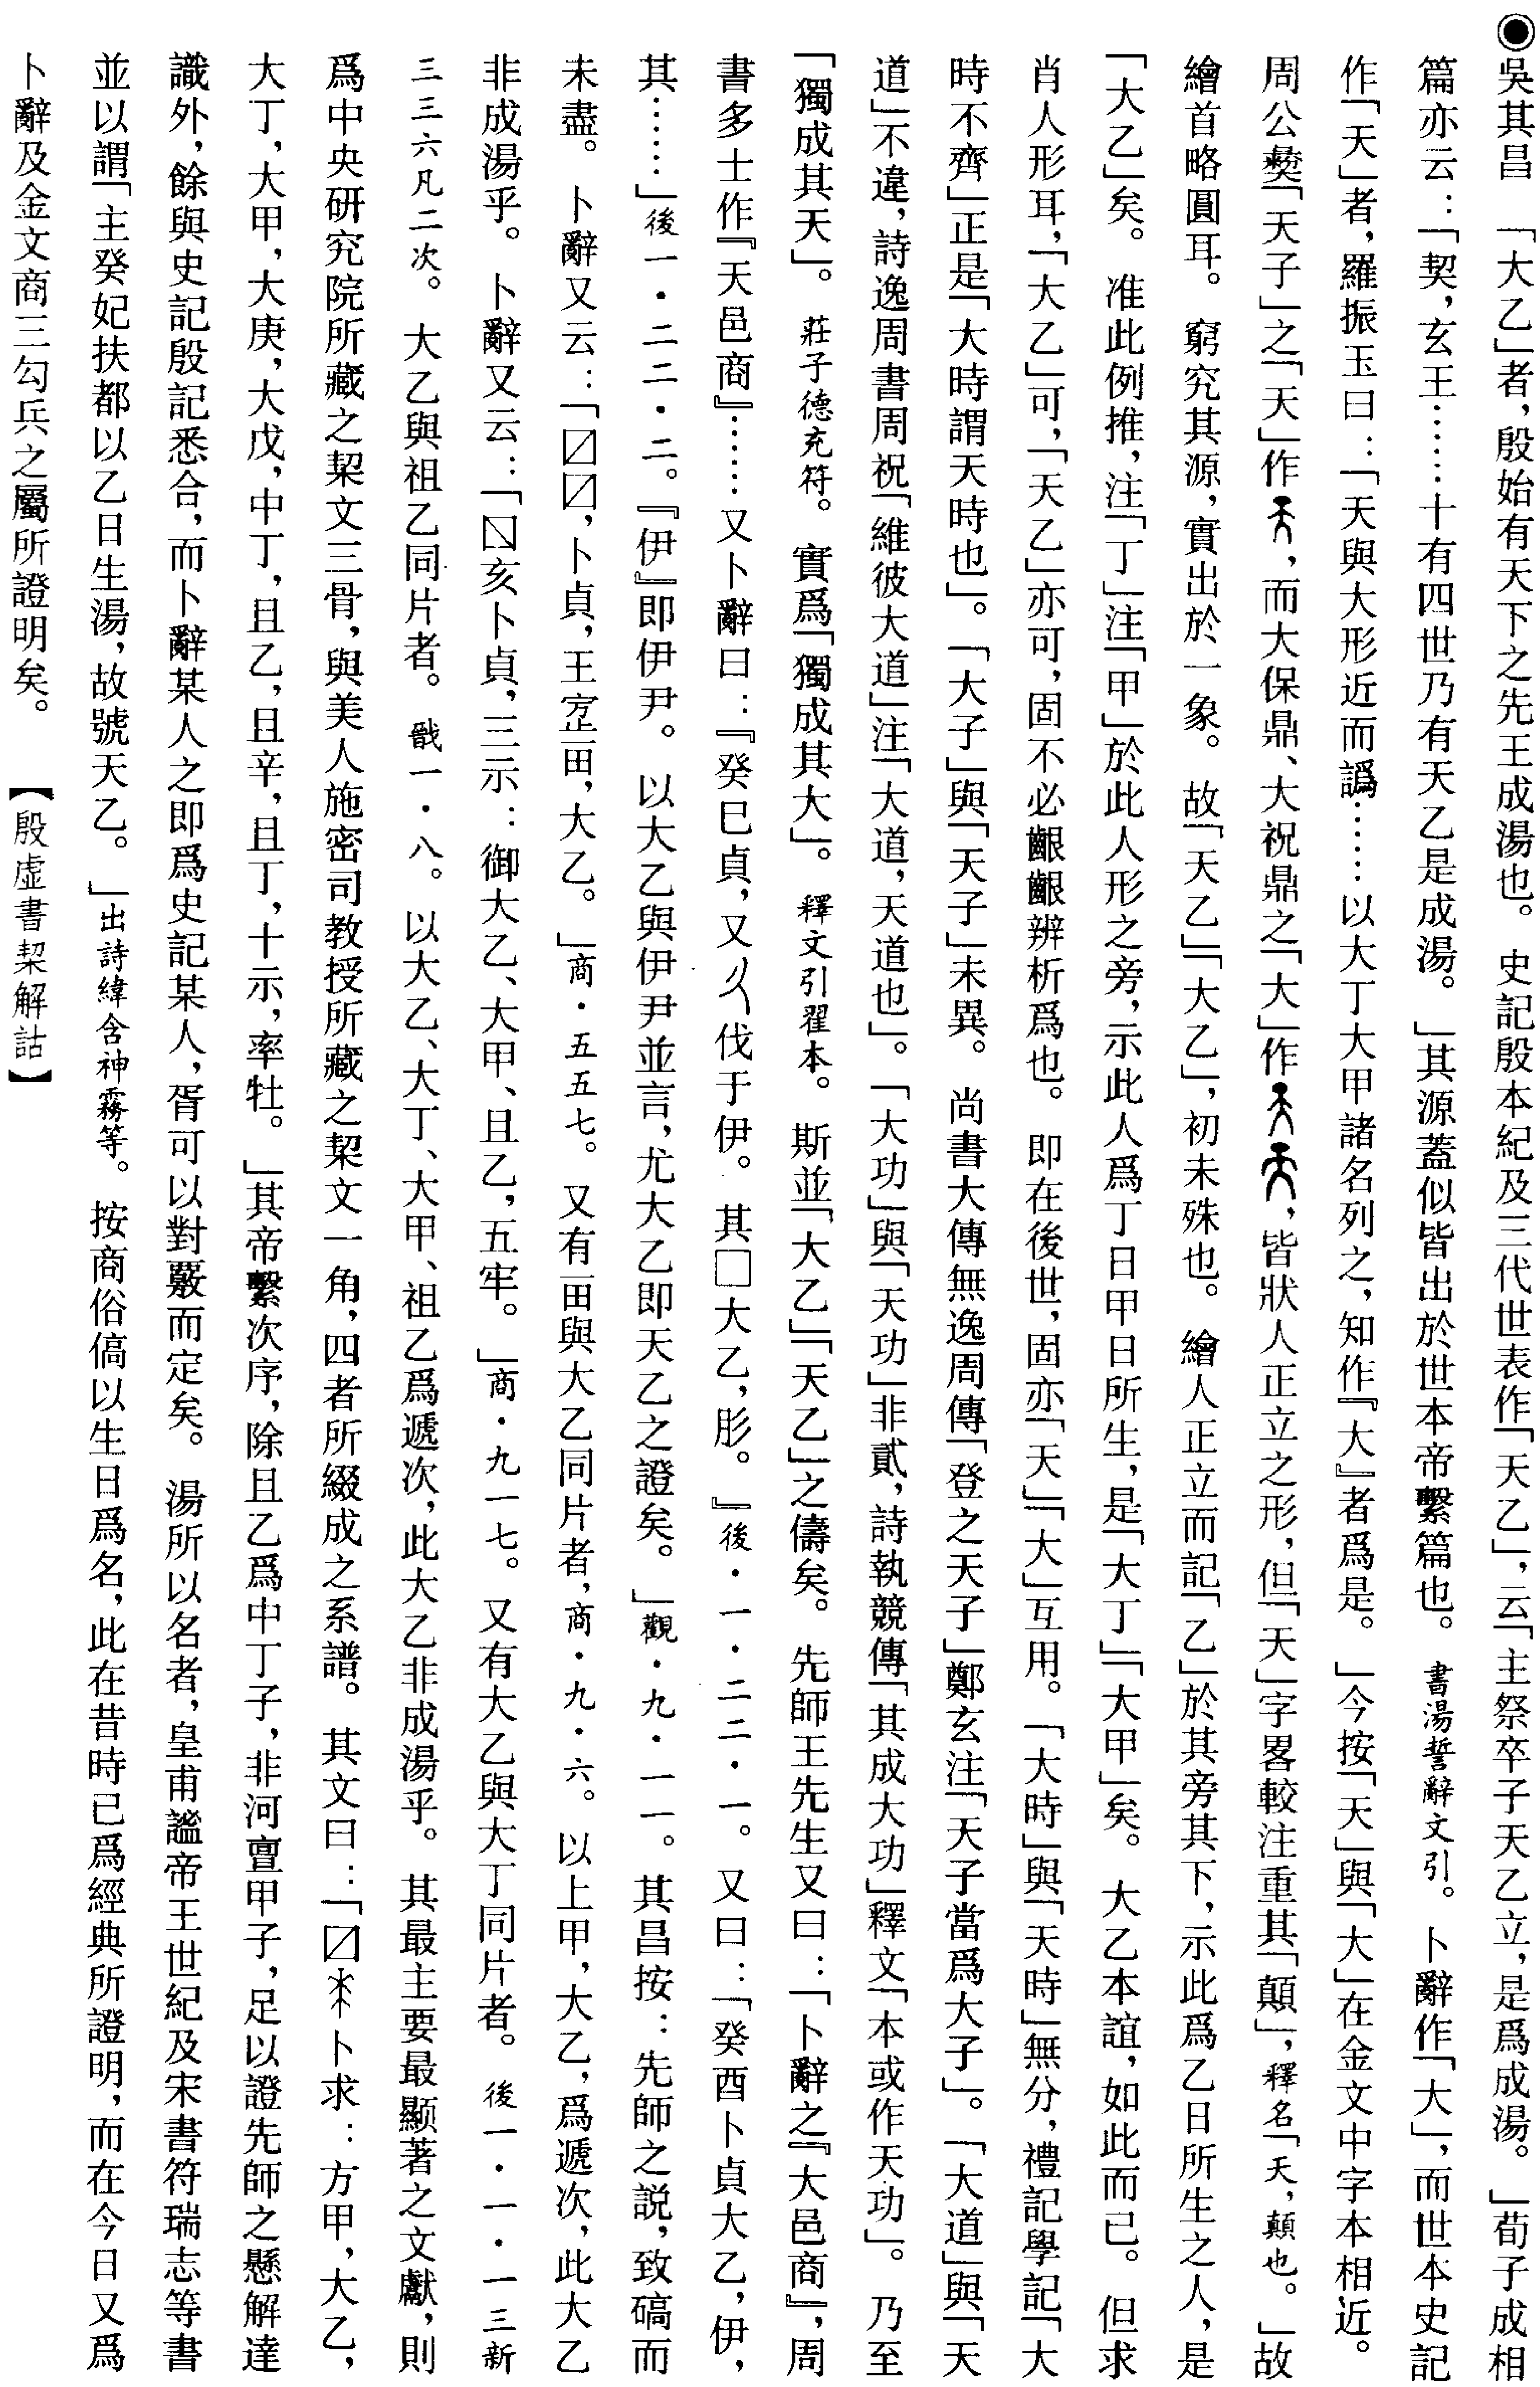 ◉吳其昌　「大乙」者，殷始有天下之先王成湯也。　史記殷本紀及三代世表作「天乙」，云「主祭卒子天乙立，是爲成湯。」荀子成相
篇亦云：「契，玄王……十有四世乃有天乙是成湯。」其源蓋似皆出於世本帝繫篇也。　書湯誓辭文引。　卜辭作「大」，而世本史記
作「天」者，羅振玉曰：「天與大形近而譌……以大丁大甲諸名列之，知作『大』者爲是。」今按「天」與「大」在金文中字本相近。
周公彝「天子」之「天」作，而大保鼎、大祝鼎之「大」作，皆狀人正立之形，但「天」字畧較注重其「顛」，釋名「天，顛也。」故
繪首略圓耳。　窮究其源，實出於一象。　故「天乙」「大乙」，初未殊也。　繪人正立而記「乙」於其旁其下，示此爲乙日所生之人，是
「大乙」矣。　准此例推，注「丁」注「甲」於此人形之旁，示此人爲丁日甲日所生，是「大丁」「大甲」矣。　大乙本誼，如此而已。　但求
肖人形耳，「大乙」可，「天乙」亦可，固不必齦齦辨析爲也。　即在後世，固亦「天」「大」互用。　「大時」與「天時」無分，禮記學記「大
時不齊」正是「大時謂天時也」。　「大子」與「天子」未異。　尚書大傳無逸周傳「登之天子」鄭玄注「天子當爲大子」。　「大道」與「天
道」不違，詩逸周書周祝「維彼大道」注「大道，天道也」。　「大功」與「天功」非貳，詩執競傳「其成大功」釋文「本或作天功」。　乃至
「獨成其天」。　莊子德充符。　實爲「獨成其大」。　釋文引翟本。　斯並「大乙」「天乙」之儔矣。　先師王先生又曰：「卜辭之『大邑商』，周
書多士作『天邑商』……又卜辭曰：『癸巳貞，又伐于伊。　其□大乙，肜。』後・一・二二・一。　又曰：「癸酉卜貞大乙，伊，
其……」後一・二二・二。『伊』即伊尹。　以大乙與伊尹並言，尤大乙即天乙之證矣。」觀・九・一一。　其昌按：先師之説，致碻而
未盡。　卜辭又云：「〼〼，卜貞，王窒，大乙。」商・五五七。　又有與大乙同片者，商・九・六。　以上甲，大乙，爲遞次，此大乙
非成湯乎。　卜辭又云：「〼亥卜貞，三示：御大乙、大甲、且乙，五牢。」商・九一七。　又有大乙與大丁同片者。　後一・一・一三新
三三六凡二次。　大乙與祖乙同片者。　戩一・八。　以大乙、大丁、大甲、祖乙爲遞次，此大乙非成湯乎。　其最主要最顯著之文獻，則
爲中央研究院所藏之栔文三骨，與美人施密司教授所藏之栔文一角，四者所綴成之系譜。　其文曰：「〼卜求：方甲，大乙，
大丁，大甲，大庚，大戊，中丁，且乙，且辛，且丁，十示，率牡。」其帝繫次序，除且乙爲中丁子，非河亶甲子，足以證先師之懸解達
識外，餘與史記殷記悉合，而卜辭某人之即爲史記某人，胥可以對覈而定矣。　湯所以名者，皇甫謐帝王世紀及宋書符瑞志等書
並以謂「主癸妃扶都以乙日生湯，故號天乙。」出詩緯含神霧等。　按商俗傐以生日爲名，此在昔時已爲經典所證明，而在今日又爲
卜辭及金文商三勾兵之屬所證明矣。　【殷虛書契解詁】